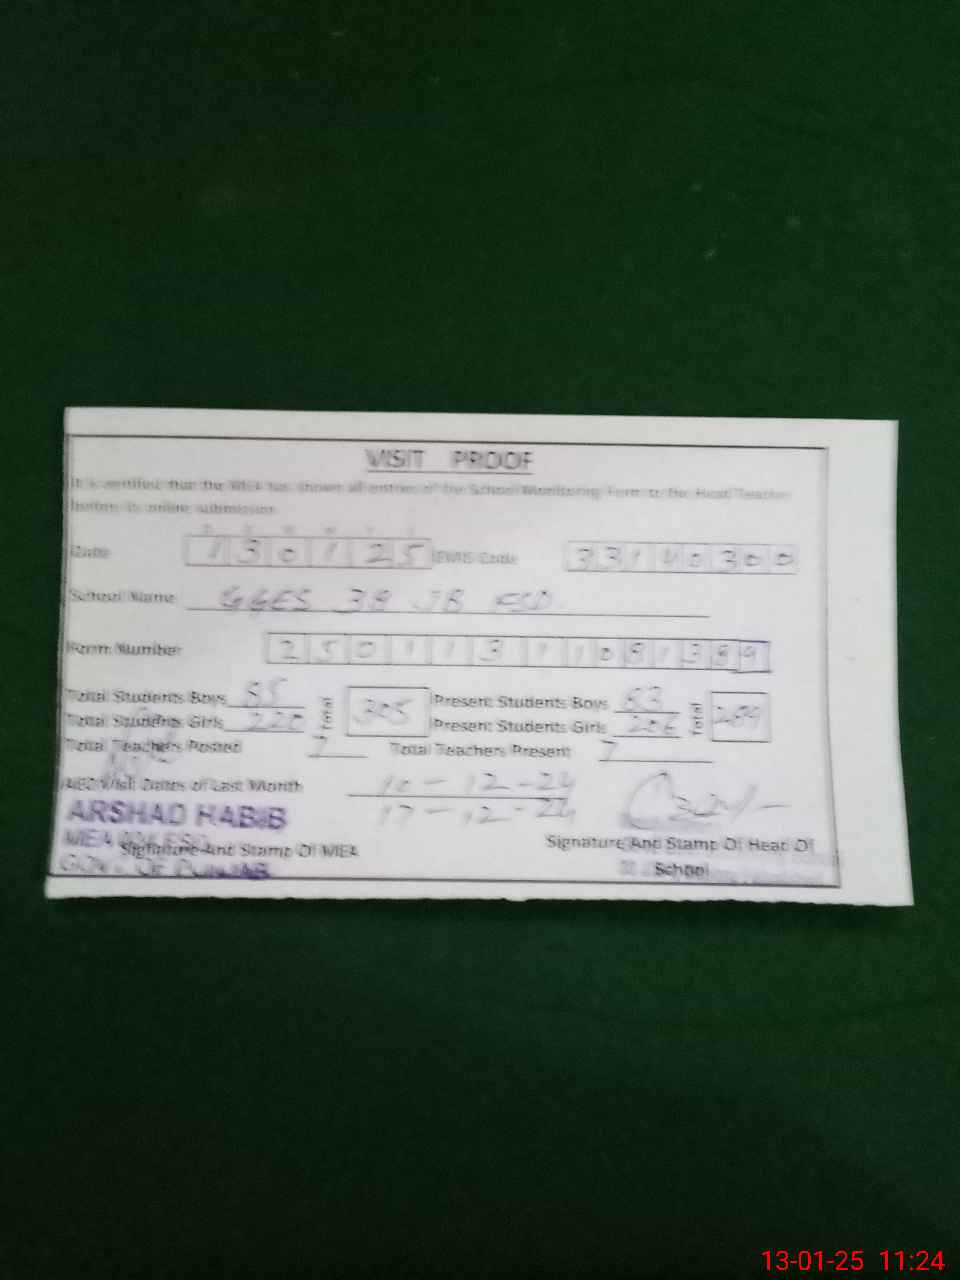 VISIT PROOF
It is certified that the MEA has shown all entries of the School Monitoring Form to the Head Teacher
before its online submission
D D M M Y Y
Date 130125 EMIS Code 33140300
School Name GGES 38 JB FSD.
Form Number 25011311081389
Total Students Boys 85 Total 305 Present Students Boys 83 Total 289
Total Students Girls 220 Present Students Girls 206
Total Teachers Posted 7 Total Teachers Present 7
Visit Dates of Last Month 10-12-24
17-12-24
ARSHAD HABIB
MEA
Signature And Stamp Of MEA Signature And Stamp Of Head Of
GOVT. OF PUNJAB School
13-01-25 11:24